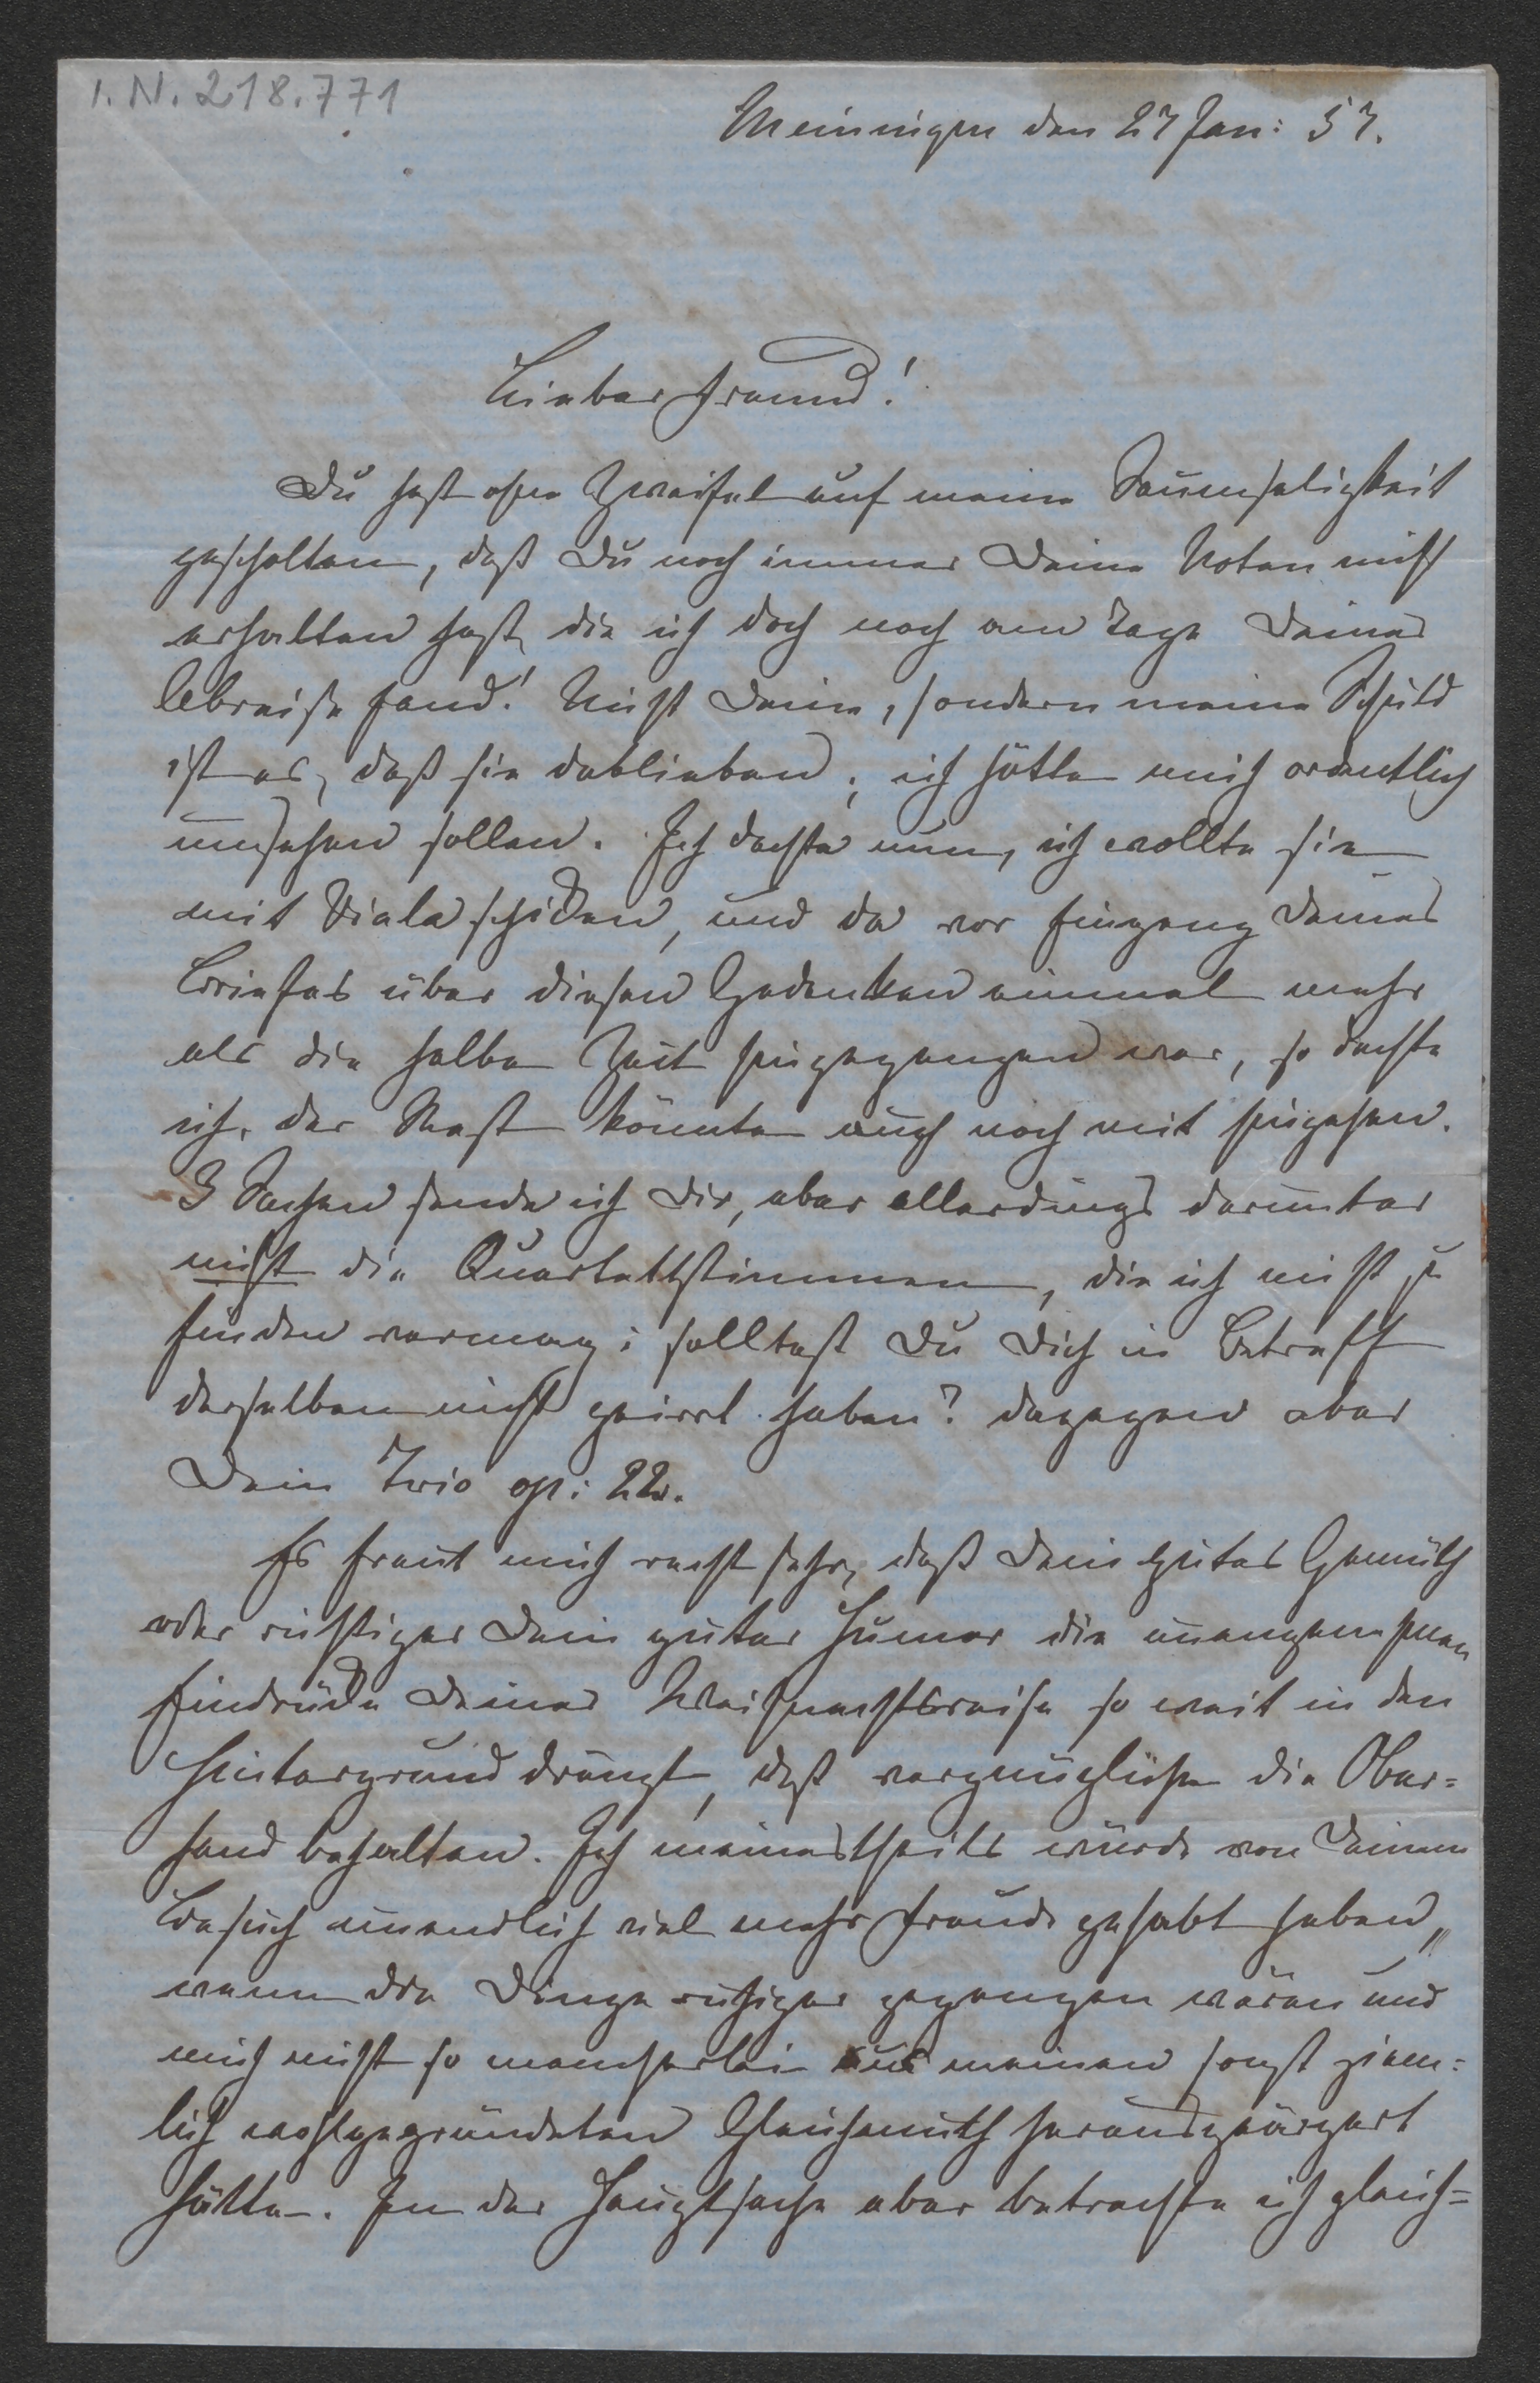 I. N. 218.771
Meiningen den 27 Jan: 57.
Lieber Freund!
Du hast ohne Zweifel auf meine Saumseligkeit
gescholten, daß Du noch immer Deine Noten nicht
erhalten hast, die ich doch noch am Tage Deiner
Abreise fand! Nicht Deine, sondern meine Schuld
ist es, daß sie dablieben; ich hätte mich ordentlich
umsehen sollen. Ich dachte nun, ich wollte sie
mit Viola schicken, und da vor Eingang Deines
Briefes über diesen Gedanken einmal mehr
als die halbe Zeit hingegangen war, so dachte
ich, der Rest könnte auch noch mit hingehen.
3 Sachen sende ich Dir, aber allerdings darunter
nicht die Quartettstimmen, die ich nicht zu
finden vermag; solltest Du Dich in Betreff
derselben nicht geirrt haben? dagegen aber
Dein Trio op: 22.
Es freut mich recht sehr, daß Dein gutes Gemüth
oder richtiger Dein guter Humor die unangenehmen
Eindrücke Deiner Weihnachtsreise so weit in den
Hintergrund drängt, daß vergnügliche die Ober=
hand behalten. Ich meinestheils würde von Deinem
Besuch unendlich viel mehr Freude gehabt haben,
wenn die Dinge ruhiger gegangen wären und
mich nicht so mancherlei aus meinem sonst ziem=
lich wohlgegründeten Gleichmuth herausgeärgert
hätte. In der Hauptsache aber betrachte ich gleich=